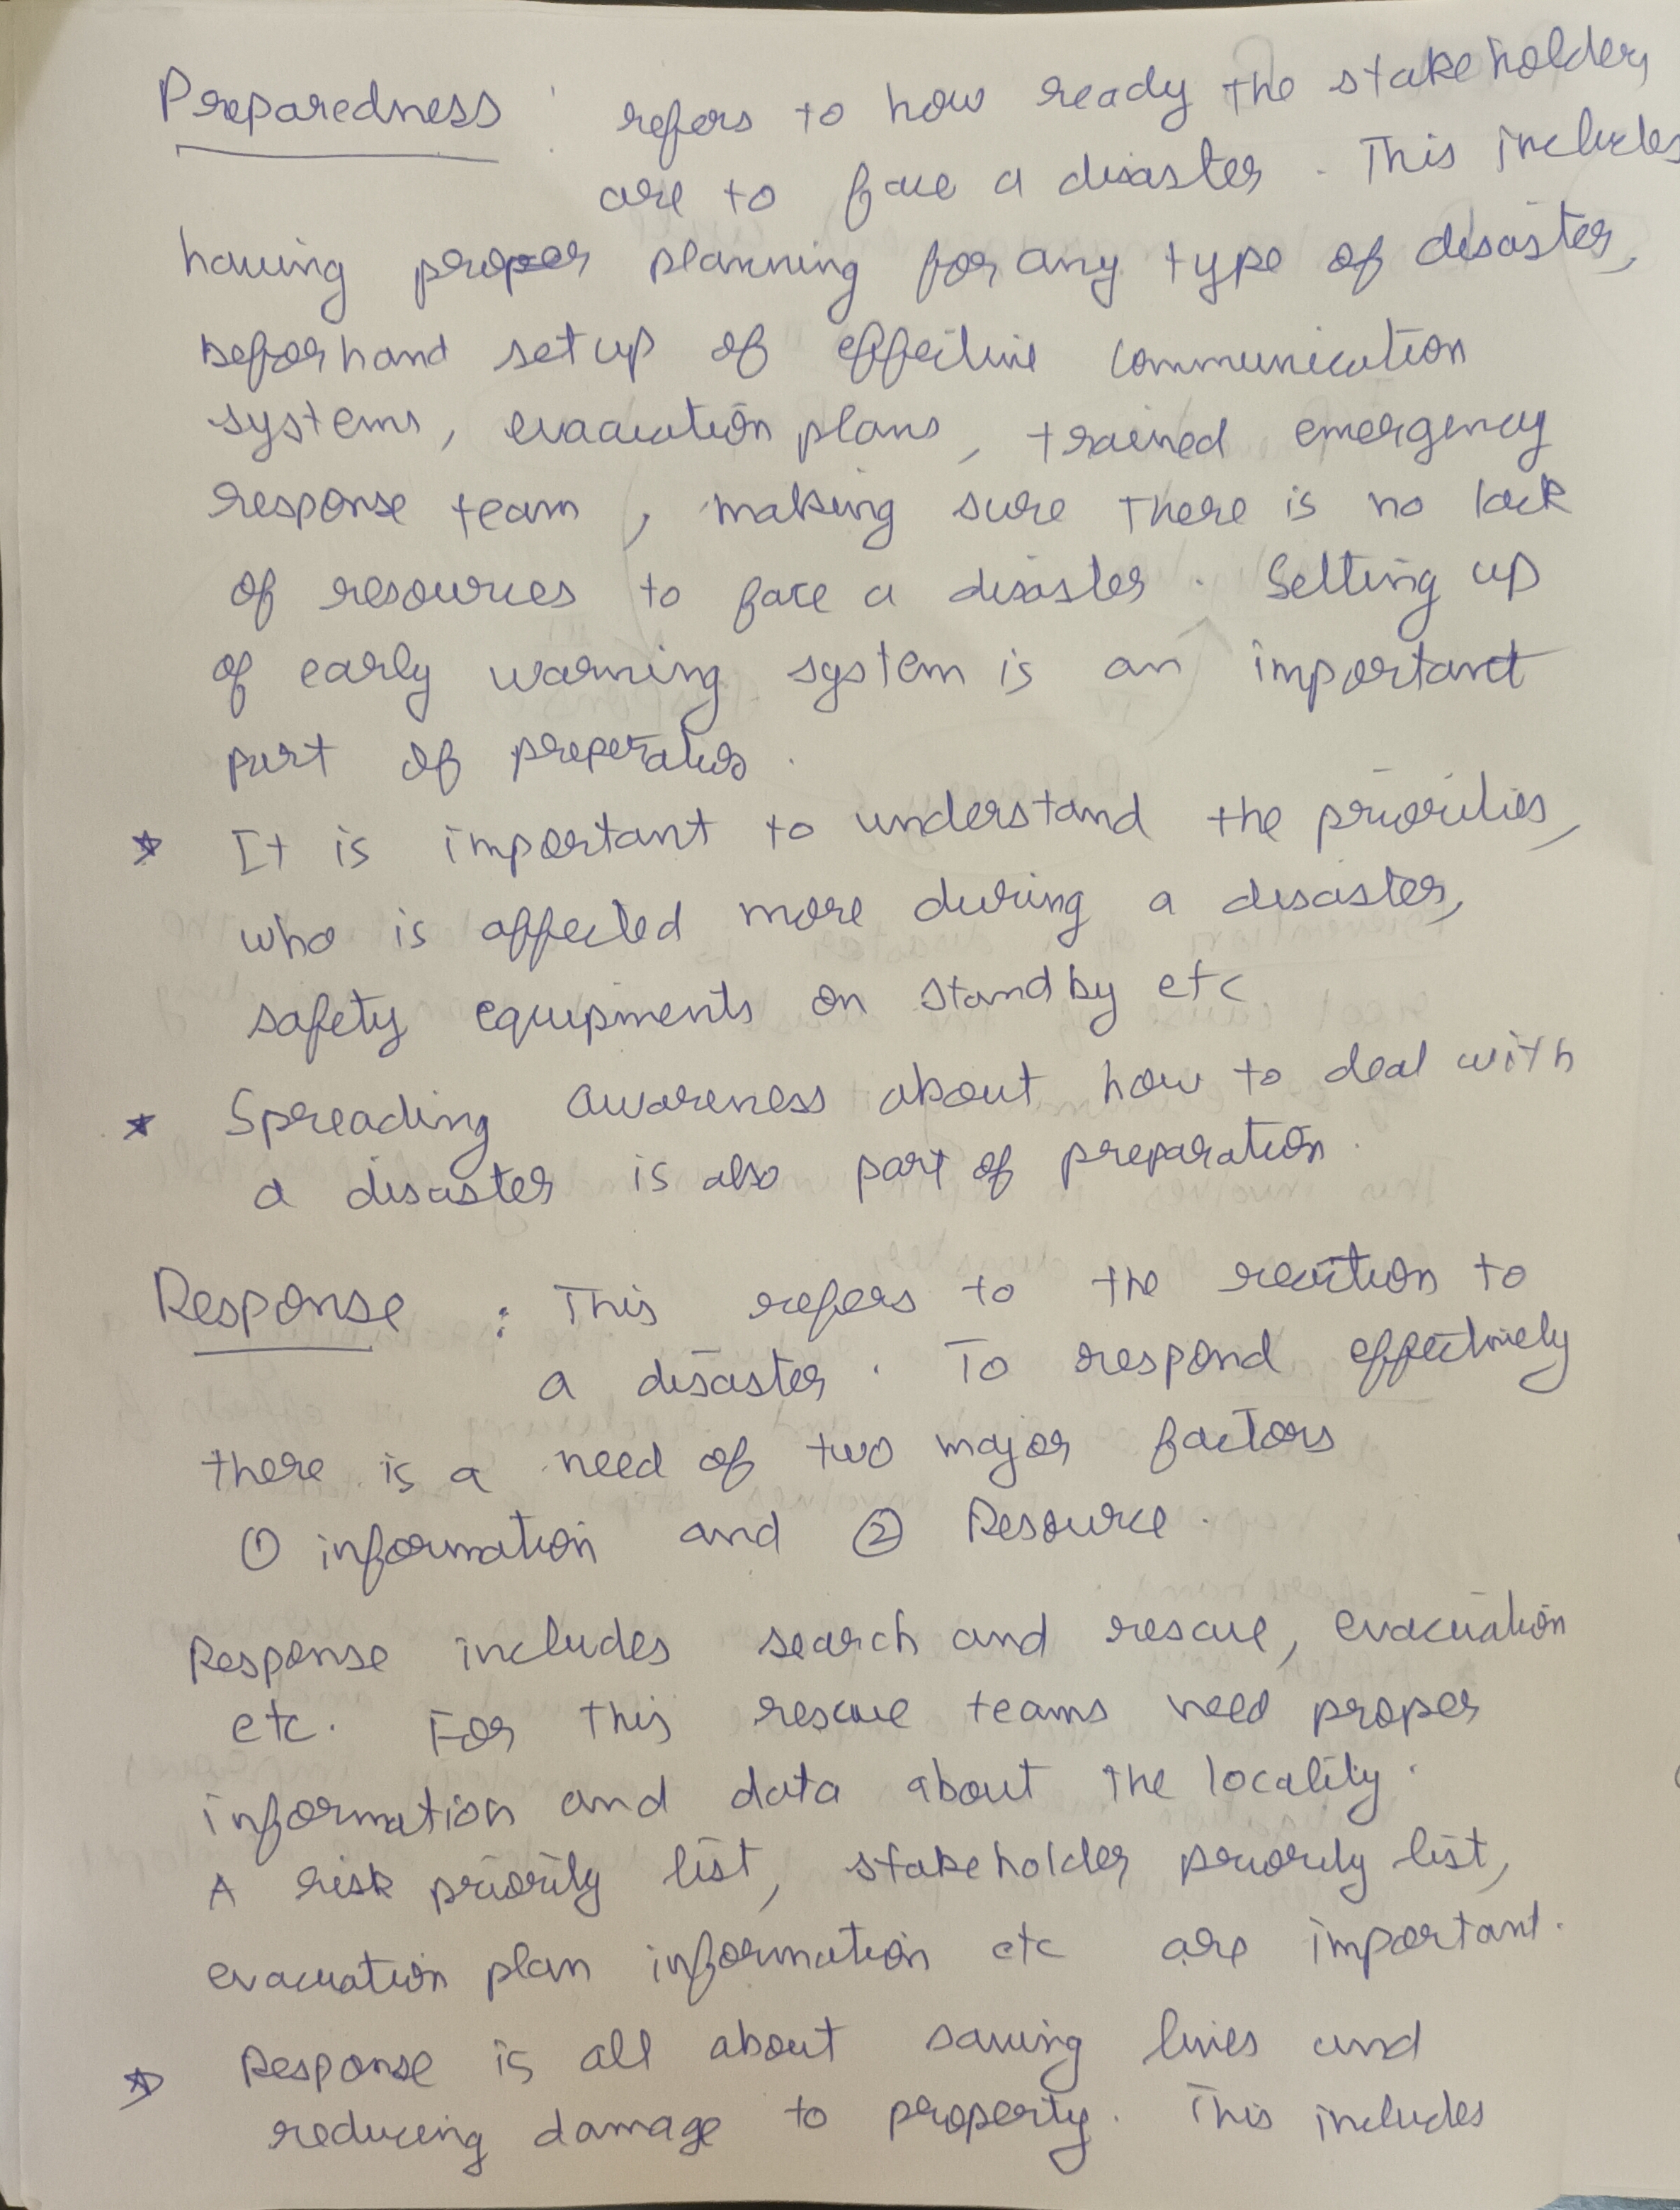 Preparedness : refers to how ready the stakeholders
are to face a disaster. This includes
having proper planning for any type of disaster,
beforhand setup of effective communication
systems, evacuation plans, trained emergency
response team, making sure there is no lack
of resources to face a disaster. Setting up
of early warning system is an important
part of
★ It is important to understand the priorities,
who is affected more during a disaster,
safety equipments on standby etc
★ Spreading awareness about how to deal with
a disaster is also part of preparation.
Response : This refers to the reaction to
a disaster. To respond effectively
there is a need of two major factors
① information and ② Resource.
Response includes search and rescue, evacuation
etc. For this rescue teams need proper
information and data about the locality.
A risk priority list, stakeholder priority list,
evacuation plan information etc are important.
★ Response is all about saving lives and
reducing damage to property. This includes